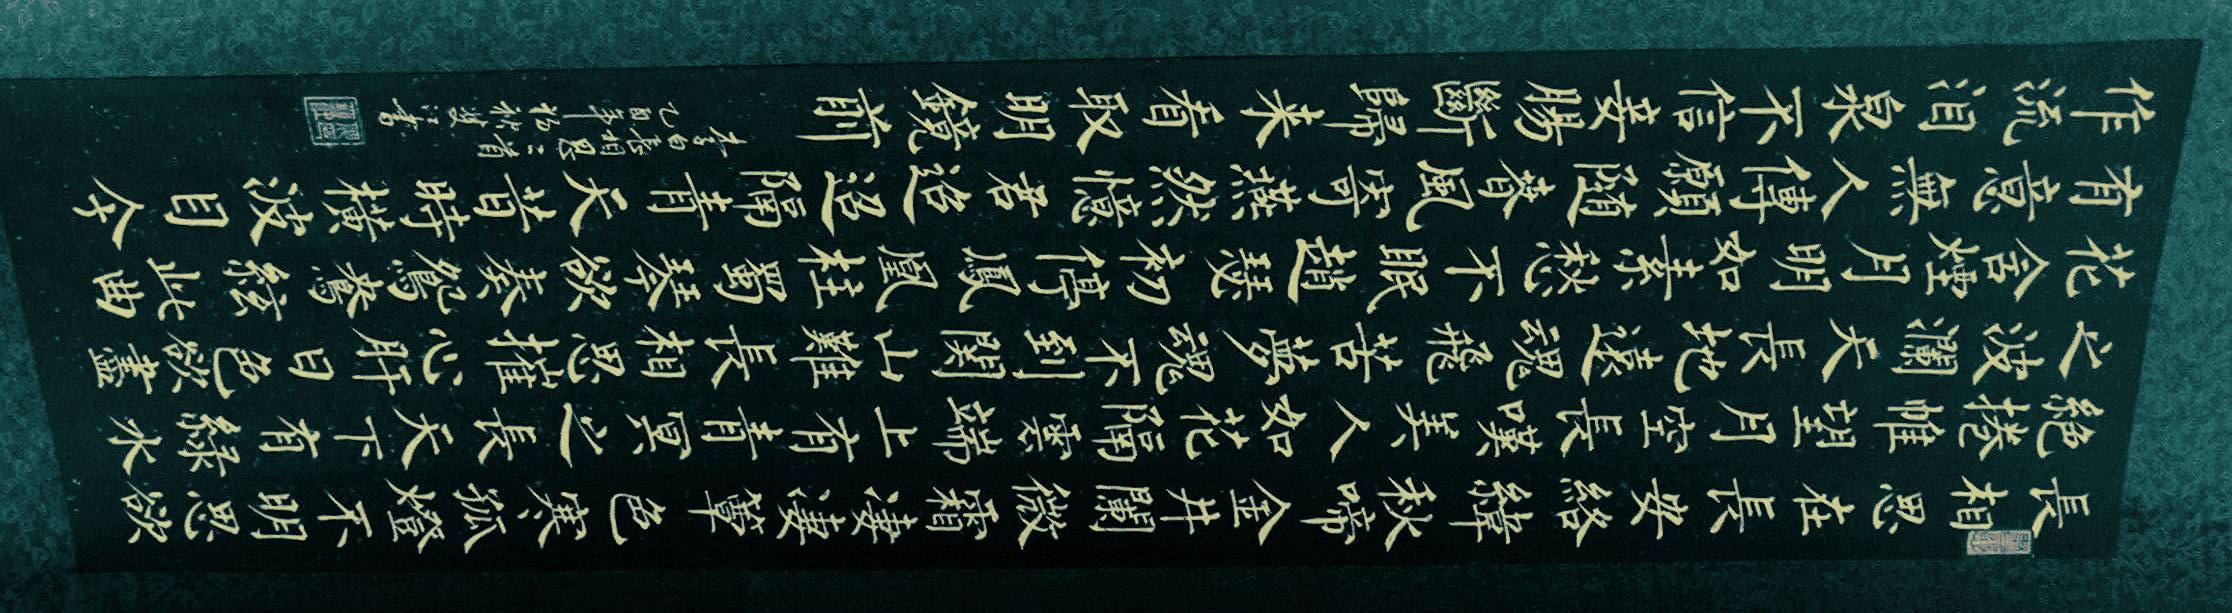 長相思在長安絡緯秋啼金井闌微霜淒淒簟色寒孤燈不明思欲
絕捲帷望月空長嘆美人如花隔雲端上有青冥之長天下有綠水
之波瀾天長地遠魂飛苦夢魂不到關山難長相思摧心肝日色欲盡
花含煙月明如素愁不眠趙瑟初停鳳凰柱蜀琴欲奏鴛鴦絃此曲
有意無人傳願隨春風寄燕然憶君迢迢隔青天昔時橫波目今
作流泪泉不信妾腸斷歸來看取明鏡前
李白長相思二首
乙酉年初秋書